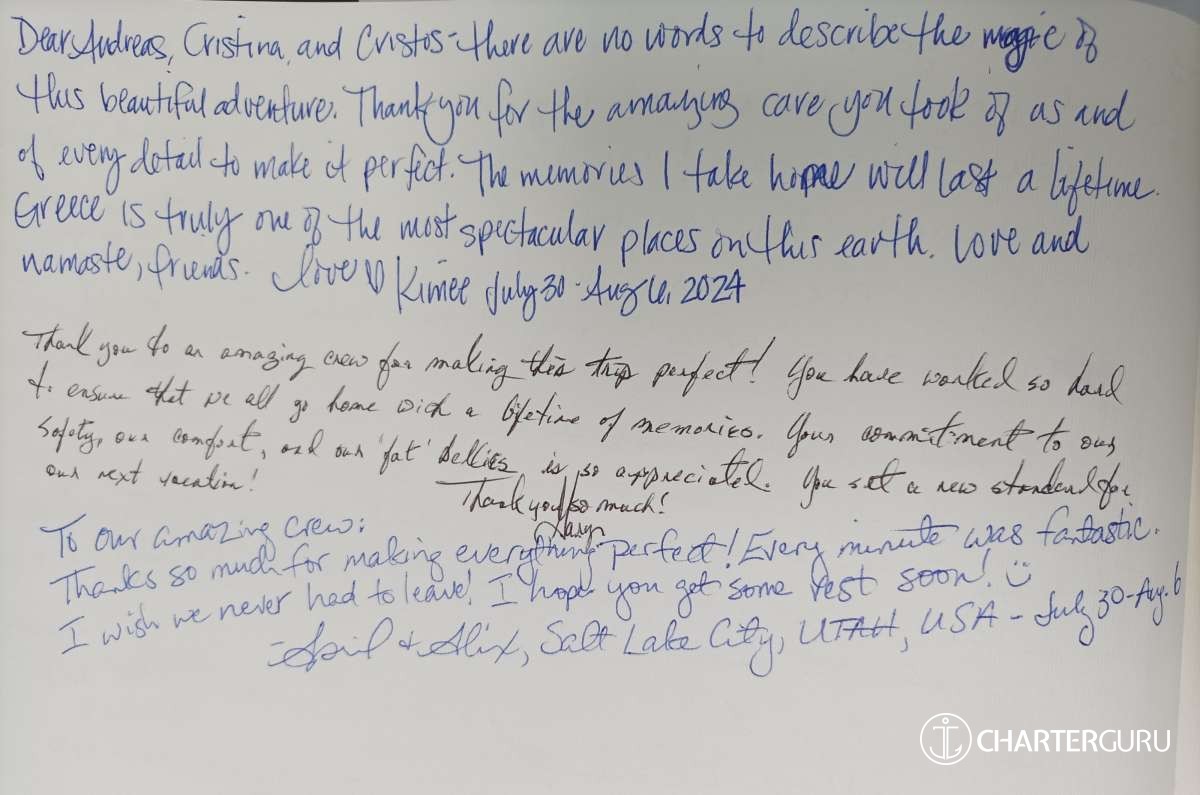 Dear Andreas, Cristina, and Cristos - there are no words to describe the magic of
this beautiful adventure. Thank you for the amazing care you took of us and
of every detail to make it perfect. The memories I take home will last a lifetime.
Greece is truly one of the most spectacular places on this earth. Love and
namaste, friends. Love ♡ Kimee July 30 - Aug 6, 2024
Thank you to an amazing crew for making this trip perfect! You have worked so hard
to ensure that we all go home with a lifetime of memories. Your commitment to our
safety, our comfort, and our 'fat' bellies, is so appreciated. You set a new standard for
our next vacation!
Thank you so much!
To our amazing crew:
Thanks so much for making everything perfect! Every minute was fantastic.
I wish we never had to leave! I hope you get some rest soon! ☺
- April + Alix, Salt Lake City, UTAH, USA - July 30 - Aug. 6
CHARTERGURU